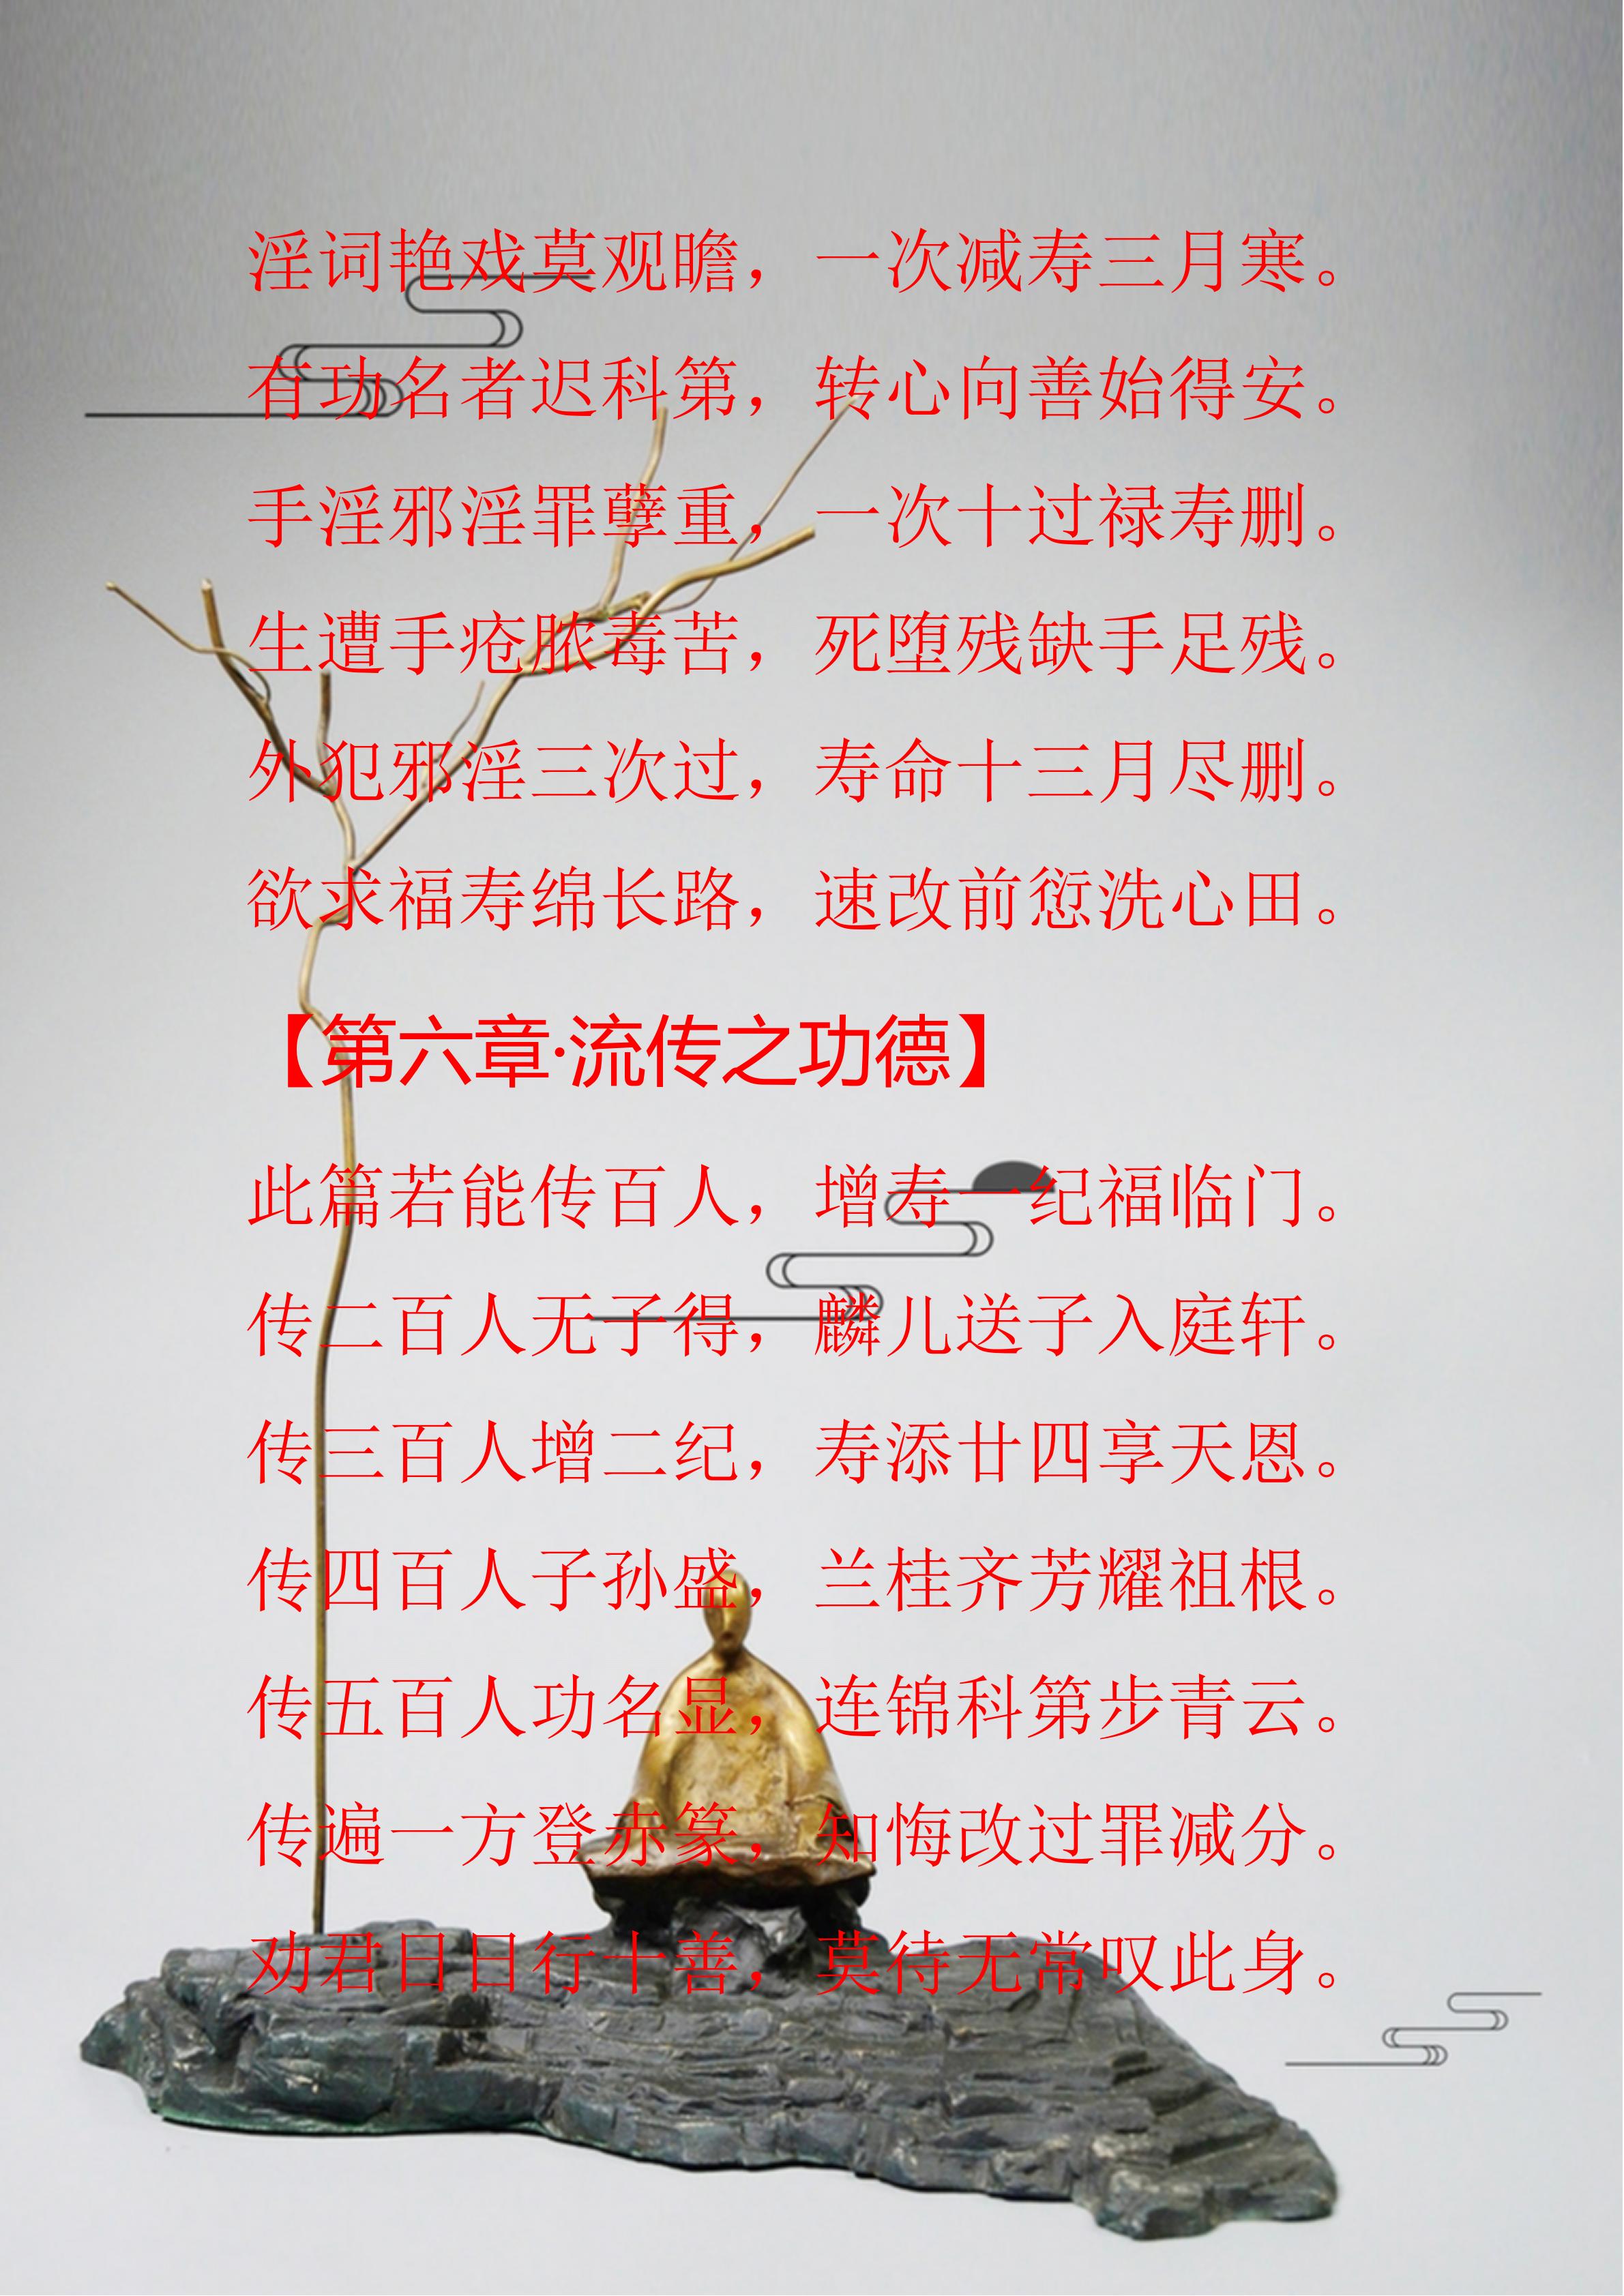 淫词艳戏莫观瞻，一次减寿三月寒。
有功名者迟科第，转心向善始得安。
手淫邪淫罪孽重，一次十过禄寿删。
生遭手疮脓毒苦，死堕残缺手足残。
外犯邪淫三次过，寿命十三月尽删。
欲求福寿绵长路，速改前愆洗心田。
【第六章·流传之功德】
此篇若能传百人，增寿一纪福临门。
传二百人无子得，麟儿送子入庭轩。
传三百人增二纪，寿添廿四享天恩。
传四百人子孙盛，兰桂齐芳耀祖根。
传五百人功名显，连锦科第步青云。
传遍一方登赤篆，知悔改过罪减分。
劝君日日行十善，莫待无常叹此身。